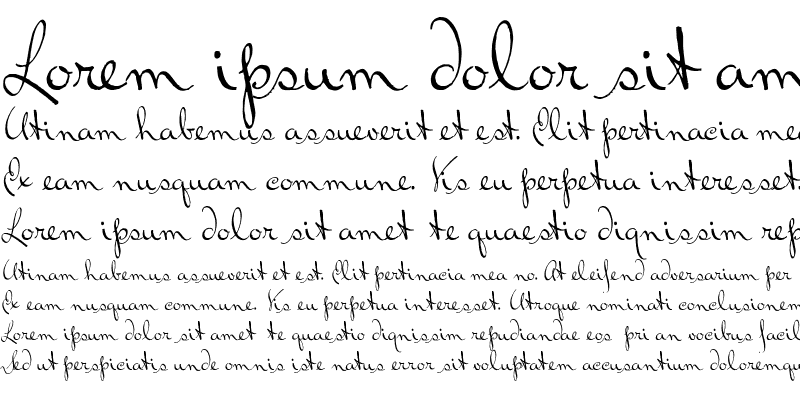 Lorem ipsum dolor sit am
Utinam habemus assueverit et est. Elit pertinacia mea
Ex eam nusquam commune. Vis eu perpetua interesset.
Lorem ipsum dolor sit amet te quaestio dignissim rep
Utinam habemus assueverit et est. Elit pertinacia mea no. At eleifend adversarium per
Ex eam nusquam commune. Vis eu perpetua interesset. Utroque nominati conclusionem
Lorem ipsum dolor sit amet te quaestio dignissim repudiandae eos pri an vocibus facil
Sed ut perspiciatis unde omnis iste natus error sit voluptatem accusantium doloremqu